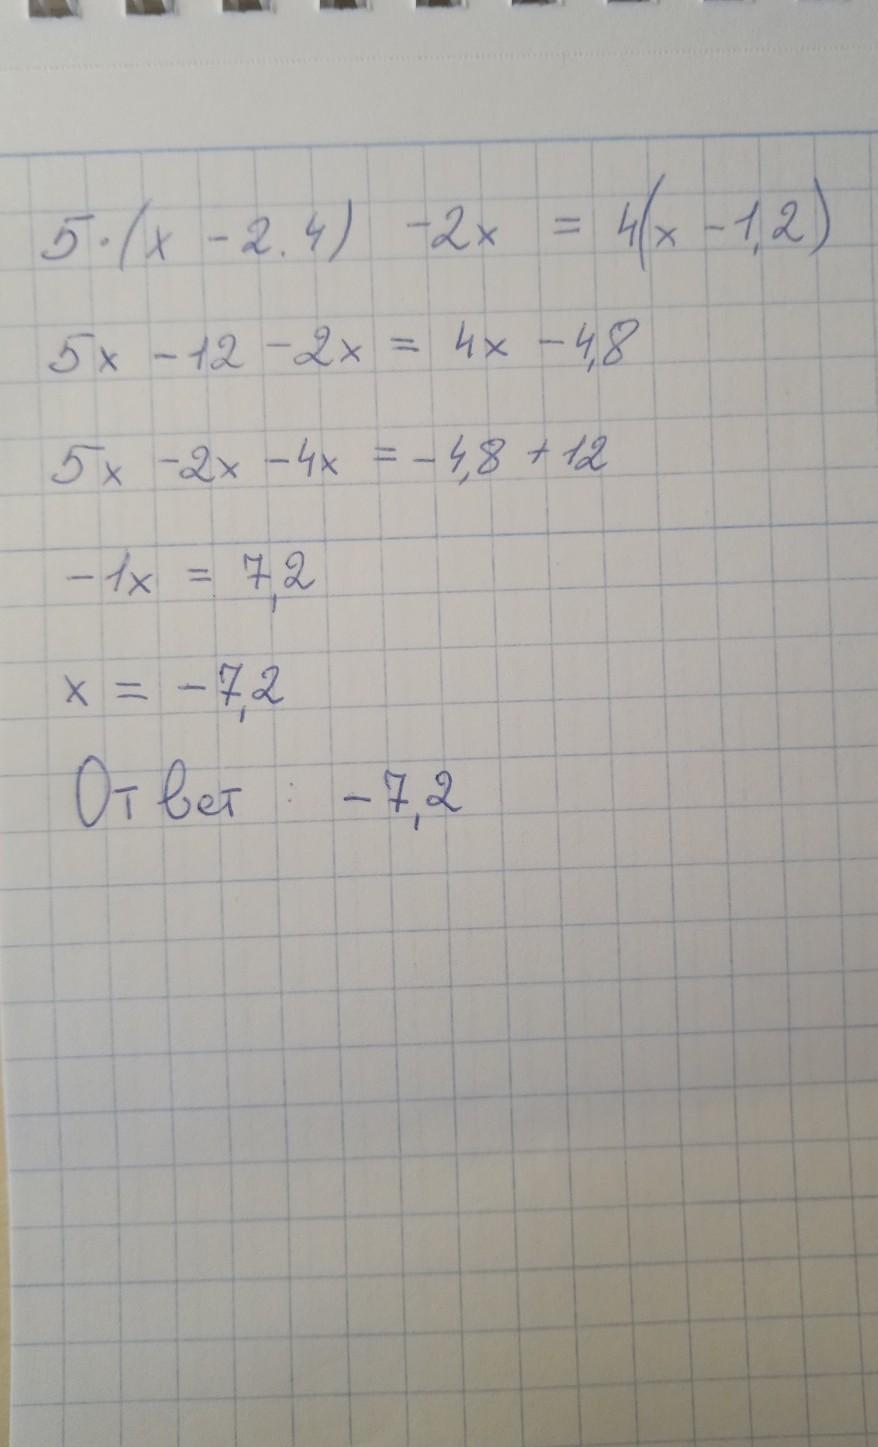 5·(x - 2.4) - 2x = 4(x - 1,2)
5x - 12 - 2x = 4x - 4,8
5x - 2x - 4x = - 4,8 + 12
- 1x = 7,2
x = - 7,2
Ответ : - 7,2